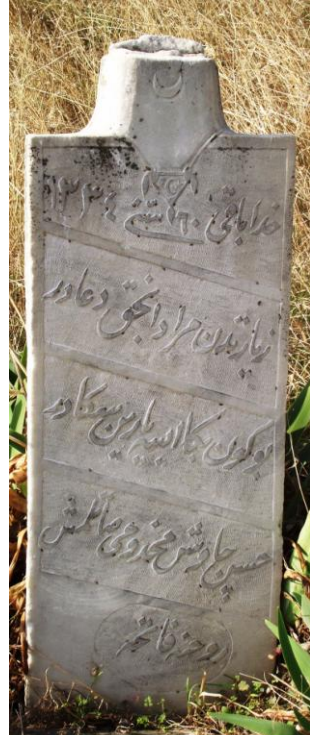 خدا باقی ١٣٣٤
زیارتدن مراد انجق دعادر
بوکون بکا ایسه یارین سکادر
حسین چاوش مخدومی
روحنه فاتحه